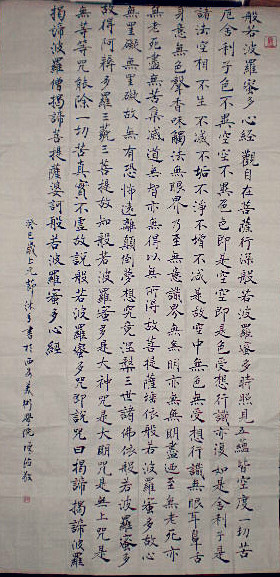 般若波羅蜜多心經觀自在菩薩行深般若波羅蜜多時照見五蘊皆空度一切苦
厄舍利子色不異空空不異色色即是空空即是色受想行識亦復如是舍利子是
諸法空相不生不滅不垢不淨不增不減是故空中無色無受想行識無眼耳鼻舌
身意無色聲香味觸法無眼界乃至無意識界無無明亦無無明盡乃至無老死亦
無老死盡無苦集滅道無智亦無得以無所得故菩提薩埵依般若波羅蜜多故心
無罣礙無罣礙故無有恐怖遠離顛倒夢想究竟涅槃三世諸佛依般若波羅蜜多
故得阿耨多羅三藐三菩提故知般若波羅蜜多是大神咒是大明咒是無上咒是
無等等咒能除一切苦真實不虛故說般若波羅蜜多咒即說咒曰揭諦揭諦波羅
揭諦波羅僧揭諦菩提薩婆訶般若波羅蜜多心經
癸巳歲上元節沐手書於西安美術學院